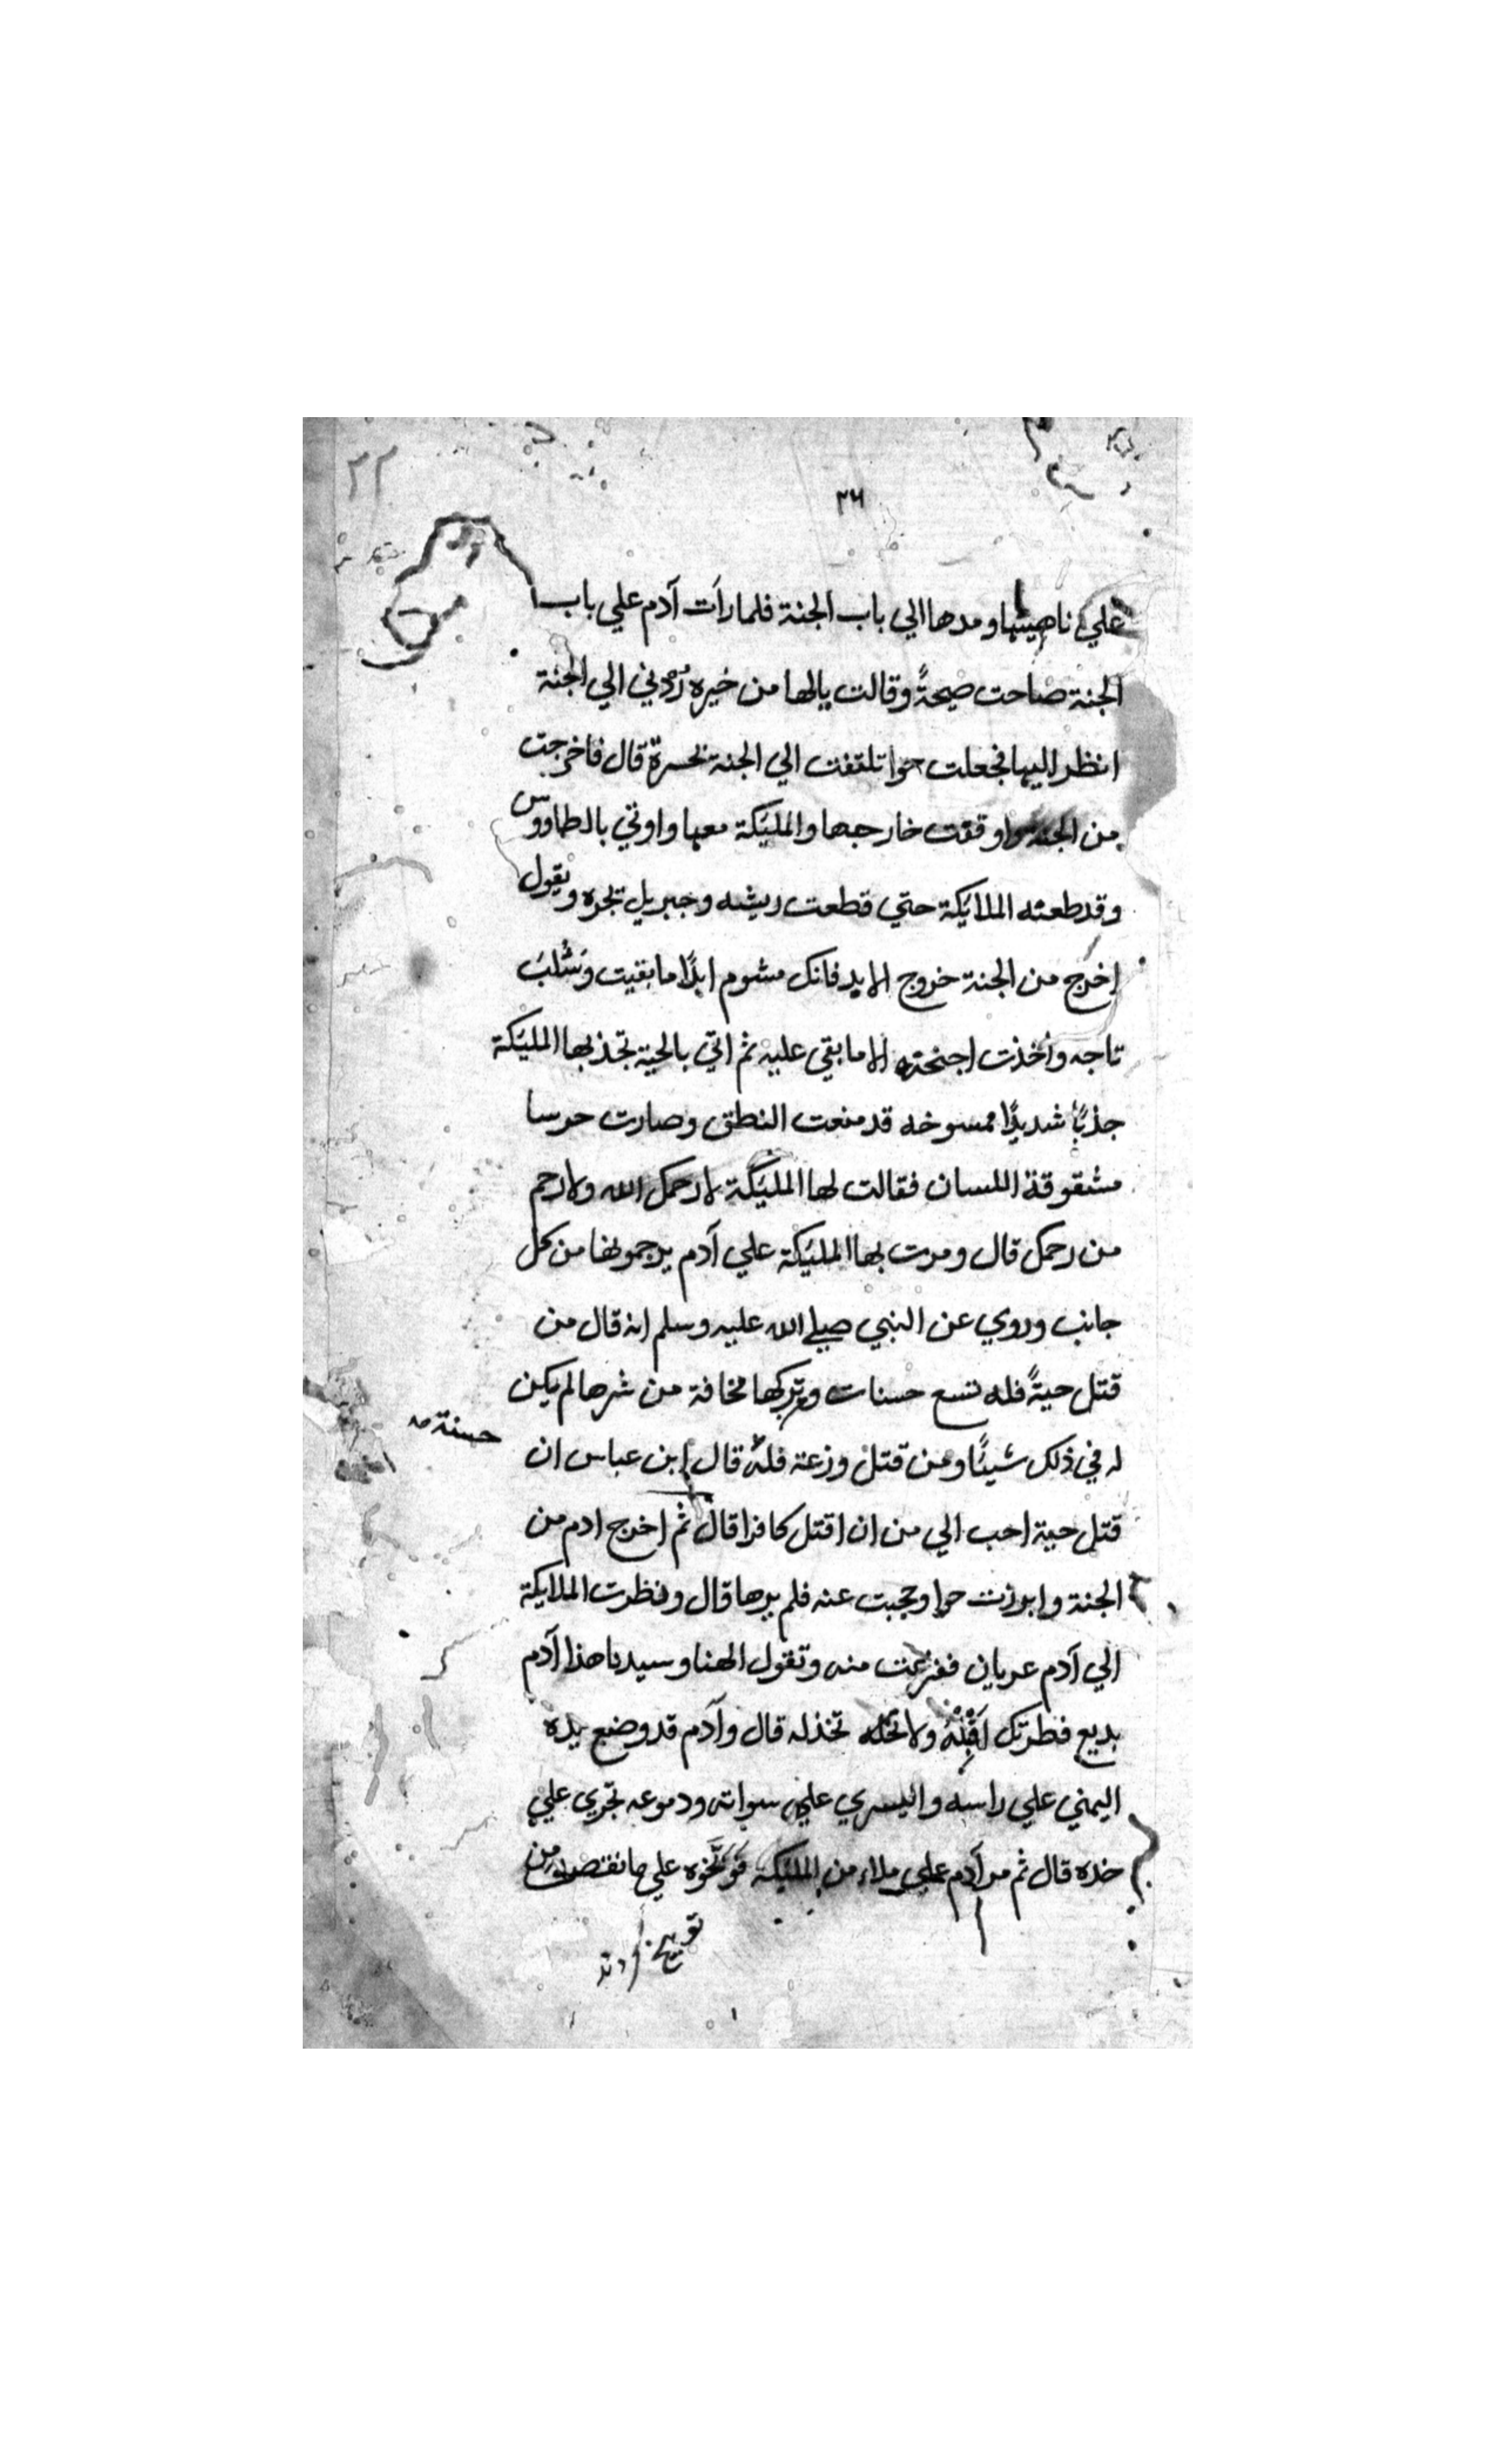 ٣٦
٢٢
علي ناصيتها ومدها الي باب الجنة فلما رأت آدم علي باب
الجنة صاحت صيحةً وقالت يالها من خيره رُدّوني الي الجنة
انظر اليها فجعلت حوا تلتفت الي الجنة بحسرة قال فاخرجت
من الجنة واوقفت خارجها والمليكة معها واوتي بالطاووس
وقد طعنته الملايكة حتي قطعت ريشه وجبريل تجره ويقول
اخرج من الجنة خروج الابد فانك مشوم ابدًا ما بقيت وسُلبَ
تاجه واخذت اجنحته الا ما بقي عليه ثم اتي بالحية تجذبها المليكة
جذبًا شديدًا ممسوخه قد منعت النطق وصارت خرسا
مشقوقة اللسان فقالت لها المليكة لا رحمك الله ولا رحم
من رحمك قال ومرت بها المليكة علي آدم يرجمونها من كل
جانب وروي عن النبي صلي الله عليه وسلم انه قال من
قتل حيةً فله تسع حسنات وتركها مخافة من شرها لم يكن
له في ذلك شيئًا ومن قتل وزغة فله قال ابن عباس ان
حسنة صح
قتل حية احب الي من ان اقتل كافرا قال ثم اخرج ادم من
الجنة وابرزت حوا وحجبت عنه فلم يرها قال ونظرت الملايكة
الي آدم عريان ففزعت منه وتقول الهنا وسيدنا هذا آدم
بديع فطرتك اَقِلْهُ ولا تخذله قال وآدم قد وضع يده
اليمني علي راسه واليسري علي سواته ودموعه تجري علي
خده قال ثم مر آدم علي ملاء من المليكة فوَبَّخوه علي ما نقض من
توبيخ كردند